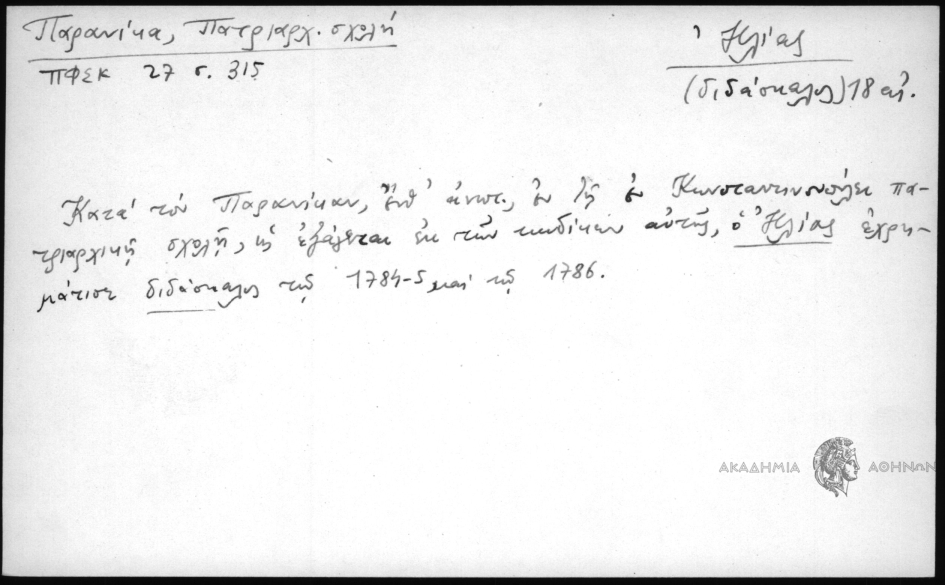 Παρανίκα, Πατριαρχ. σχολή
ΠΦΣΚ 27 σ. 315
Ἠλίας
(διδάσκαλος) 18 αἰ.
Κατὰ τὸν Παρανίκαν, ἔνθ' ἀνωτ., ἐν τῇ ἐν Κωνσταντινουπόλει πα-
τριαρχικῇ σχολῇ, ὡς ἐξάγεται ἐκ τῶν κωδίκων αὐτῆς, ὁ Ἠλίας ἐχρη-
μάτισε διδάσκαλος τῷ 1784-5 καὶ τῷ 1786.
ΑΚΑΔΗΜΙΑ ΑΘΗΝΩΝ